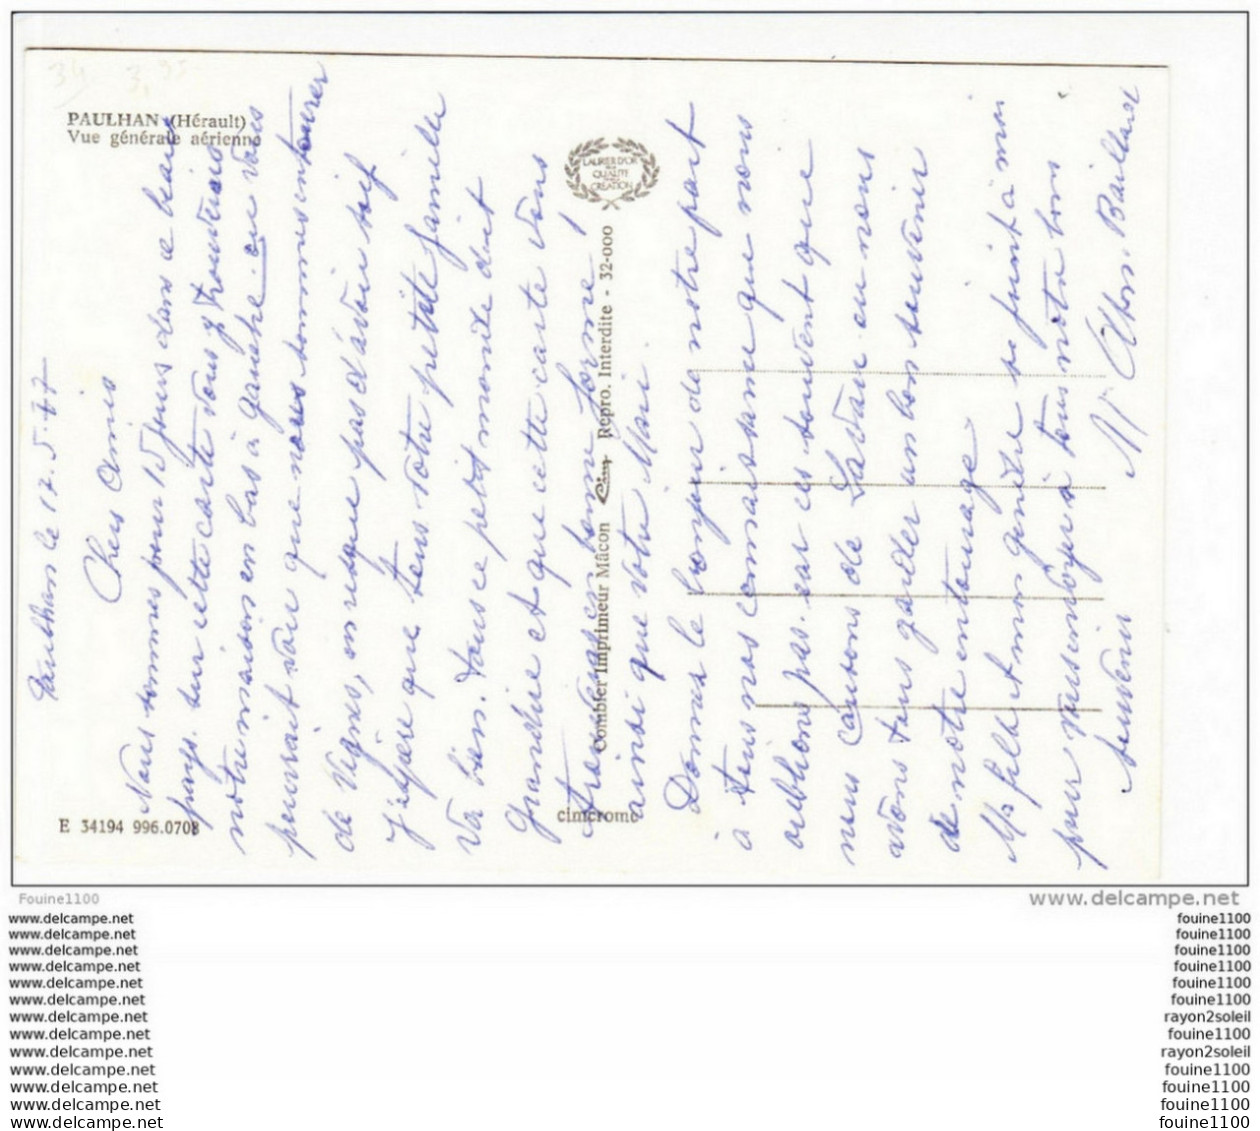 34 3,95
PAULHAN (Hérault)
Vue générale aérienne
LAURIER D'OR
DE LA
QUALITÉ
CRÉATION
Paulhan le 12.5.77
Chers Amis
Nous sommes pour 15 jours dans ce beau
pays. sur cette carte vous y trouverais
notre maison en bas à gauche. ou vous
pourrait voir que nous sommes entourer
de Vignes, on risque pas d'avoir soif
J'espère que tous votre petite famille
va bien. Tous ce petit monde doit
Grandire et que cette carte vous
trouveras en bonne forme,
ainsi que votre Mari.
Donner le bonjour de notre part
à tous nos connaissance que nous
oublions pas. car ces souvent que
nous causons de Lavau ou nous
avons tous garder un bon souvenir
de notre entourage
Ma fille et mon gendre se joint à moi
pour vous envoyer a tous notre bons
souvenir M Abn. Baillard
Combier Imprimeur Mâcon Cim Repro. Interdite - 32-000
E 34194 996.0708
cimcrome
Fouine1100 www.delcampe.net
www.delcampe.net fouine1100
www.delcampe.net fouine1100
www.delcampe.net fouine1100
www.delcampe.net fouine1100
www.delcampe.net fouine1100
www.delcampe.net fouine1100
www.delcampe.net rayon2soleil
www.delcampe.net fouine1100
www.delcampe.net rayon2soleil
www.delcampe.net fouine1100
www.delcampe.net fouine1100
www.delcampe.net fouine1100
www.delcampe.net fouine1100